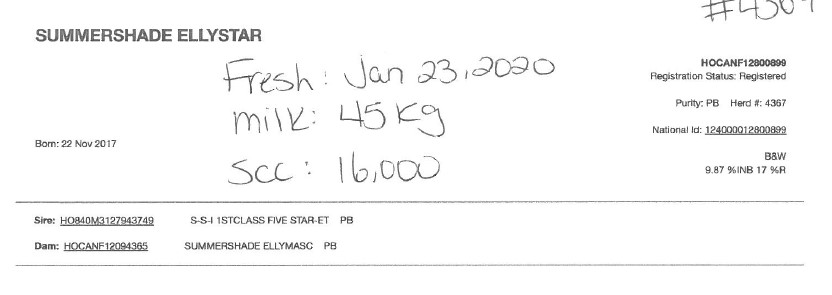 SUMMERSHADE ELLYSTAR
Fresh: Jan 23, 2020
milk: 45 kg
SCC: 16,000
HOCANF12800899
Registration Status: Registered
Purity: PB Herd #: 4367
National Id: 124000012800899
Born: 22 Nov 2017
B&W
9.87 %INB 17 %R
Sire: HO840M3127943749 S-S-I 1STCLASS FIVE STAR-ET PB
Dam: HOCANF12094365 SUMMERSHADE ELLYMASC PB